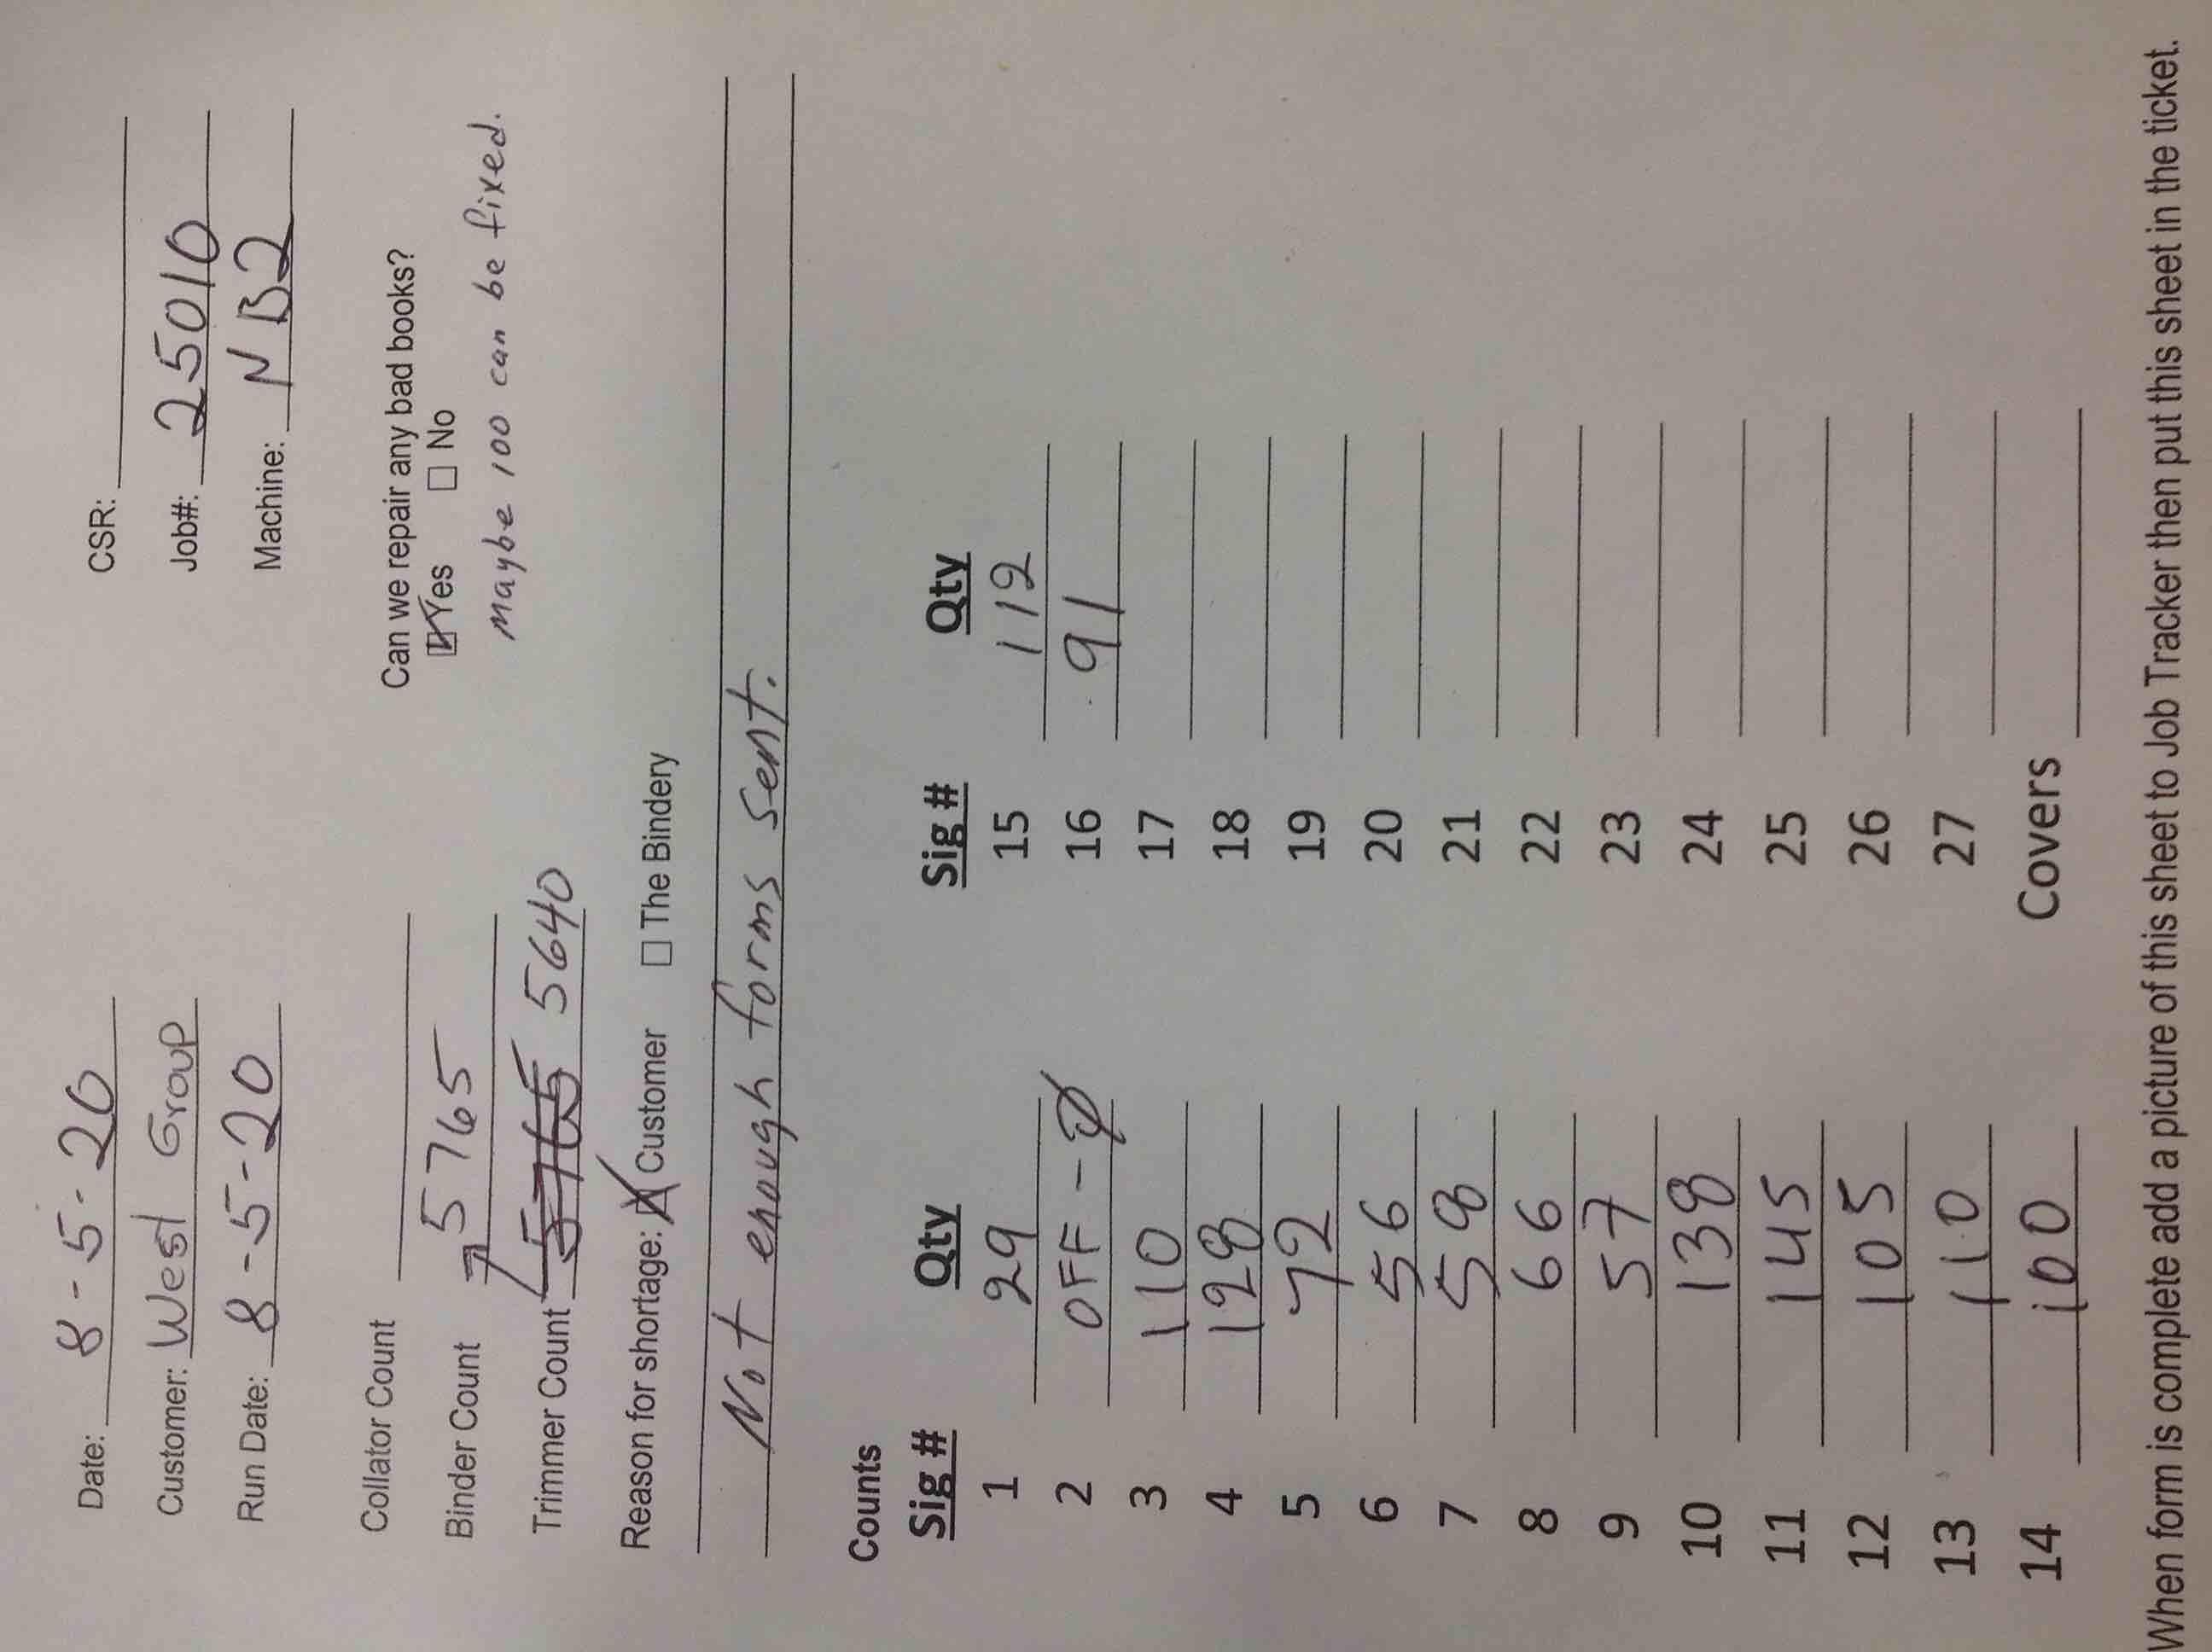 Date: 8-5-20 CSR:
Customer: West Group Job#: 25010
Run Date: 8-5-20 Machine: NB2
Collator Count
Can we repair any bad books?
Binder Count 5765 Yes No
Trimmer Count 5765 5640 maybe 100 can be fixed.
Reason for shortage: Customer The Bindery
Not enough forms sent.
Counts
Sig # Qty Sig # Qty
1 29 15 112
2 OFF - Ø 16 91
3 110 17
4 128 18
5 72 19
6 56 20
7 58 21
8 66 22
9 57 23
10 138 24
11 145 25
12 105 26
13 110 27
14 100 Covers
When form is complete add a picture of this sheet to Job Tracker then put this sheet in the ticket.